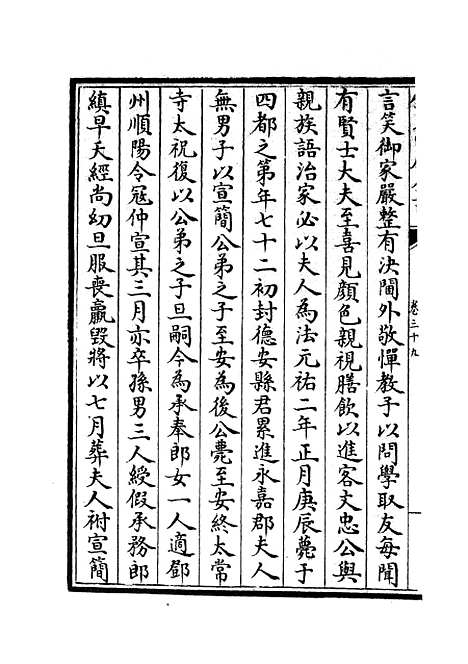 言笑御家嚴整有決閫外敬憚教子以問學取友每聞
有賢士大夫至喜見顔色親視膳飲以進客文忠公與
親族語治家必以夫人為法元祐二年正月庚辰薨于
四都之第年七十二初封德安縣君累進永嘉郡夫人
無男子以宣簡公弟之子至安為後公薨至安終太常
寺太祝復以公弟之子旦嗣今為承奉郎女一人適鄧
州順陽令冦仲宣其三月亦卒孫男三人綬假承務郎
縝早夭經尚幼旦服喪羸毀將以七月葬夫人祔宣簡
卷三十九